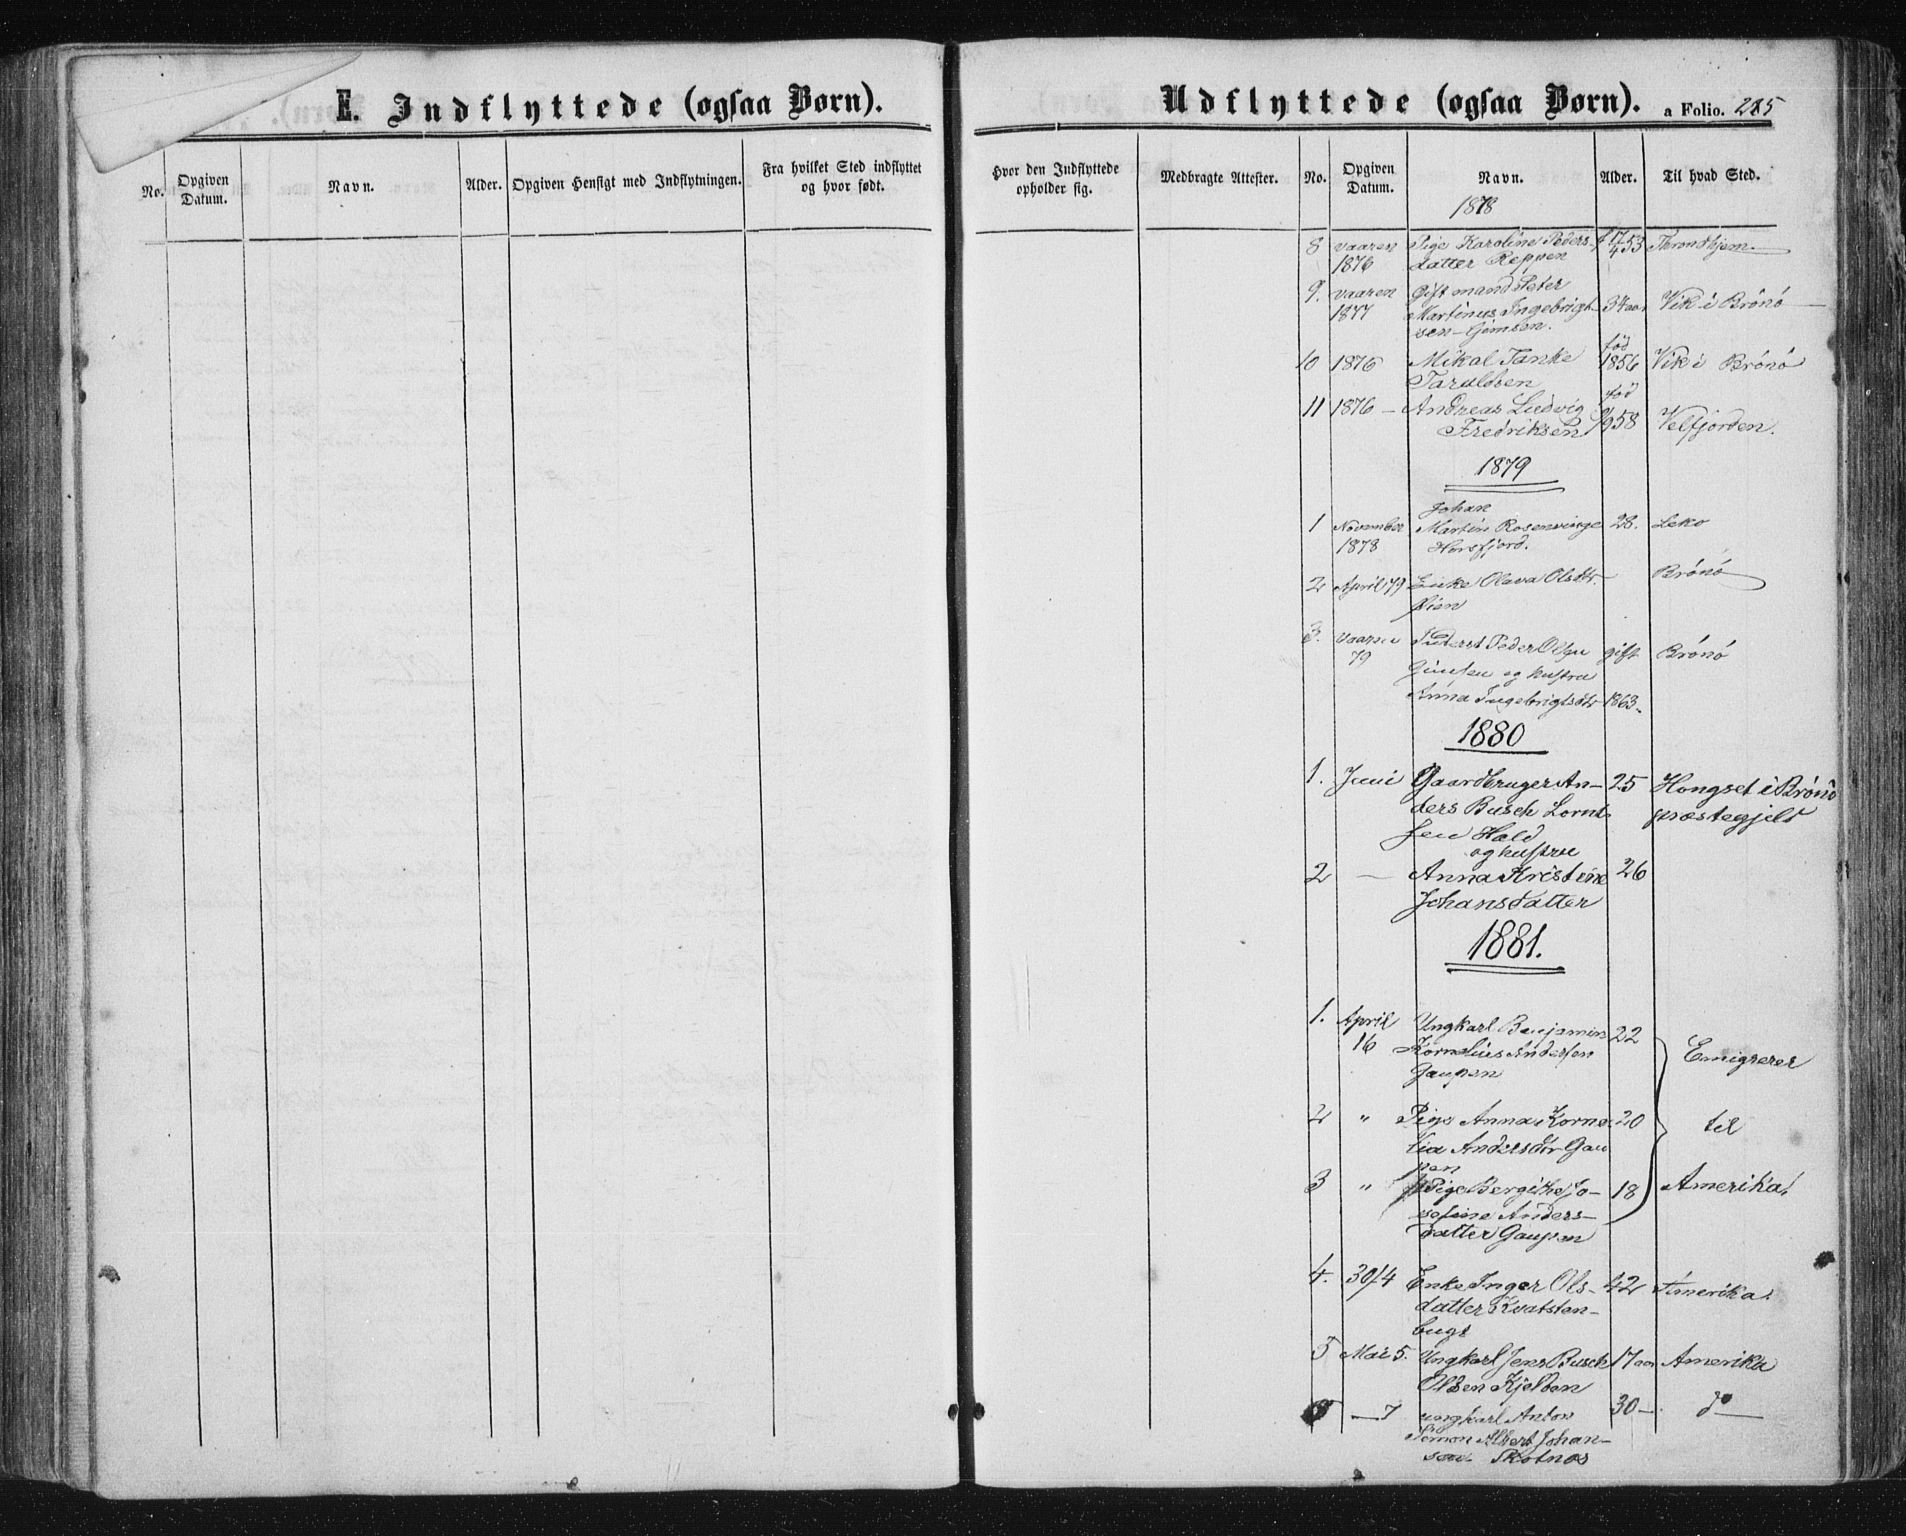 E. Indflyttede (ogsaa Børn).
Udflyttede (ogsaa Børn). a Folio. 215
No.
Opgiven Datum.
Navn.
Alder.
Opgiven Hensigt med Indflytningen.
Fra hvilket Sted indflyttet og hvor født.
Hvor den Indflyttede opholder sig.
Medbragte Attester.
No.
Opgiven Datum.
Navn.
Alder.
Til hvad Sted.
1878
8 vaaren Pige Karoline Peders- 53 Throndhjem
1876 datter Reppen
9. vaaren Gift mand Peter
1877 Martinus Ingebrigt- 34 aar Vik i Brönö
sen Gimsen.
fød
10 1876 Mikal Tanke 1856 Vik i Brönö
Taraldsen
fød
11 1876 — Andreas Ludvig
Fredriksen 58 Velfjorden.
1879
Johan
1 November Martin Rosenvinge 28. Leko
1878 Horsfjord.
2 April 79 Enke Olava Olsdtr. Brönö
3. Vaaren Peder gift Brönö
79 og hustru
Anna Ingebrigtsdtr 1863
1880
1. Juni Gaardbruger An- 25 Hongset i Brönö
ders Busch Lornt- præstegjeld
sen Hald
og hustru
2 — Anna Kristine 26
Johansdatter
1881.
1. April Ungkarl Benjamin 22
16 Kornelius Andersen Emigrerer
Gaupen
2 " Pige Anna Korne- 20 til
lia Andersdtr Gau
pen
3 " Pige Bergithe Jo- 18 Amerika.
sefine Anders-
datter Gaupen
4. 30/4 Enke Inger Ols- 42 Amerika.
datter Kvatsten-
bugt
5 Mai 5. Ungkarl Jens Busch 17 aar Amerika
Olsen Kjelden
6 — 7 ungkarl Anton 30 — do
Simon Albert Johan-
sen Skotnes